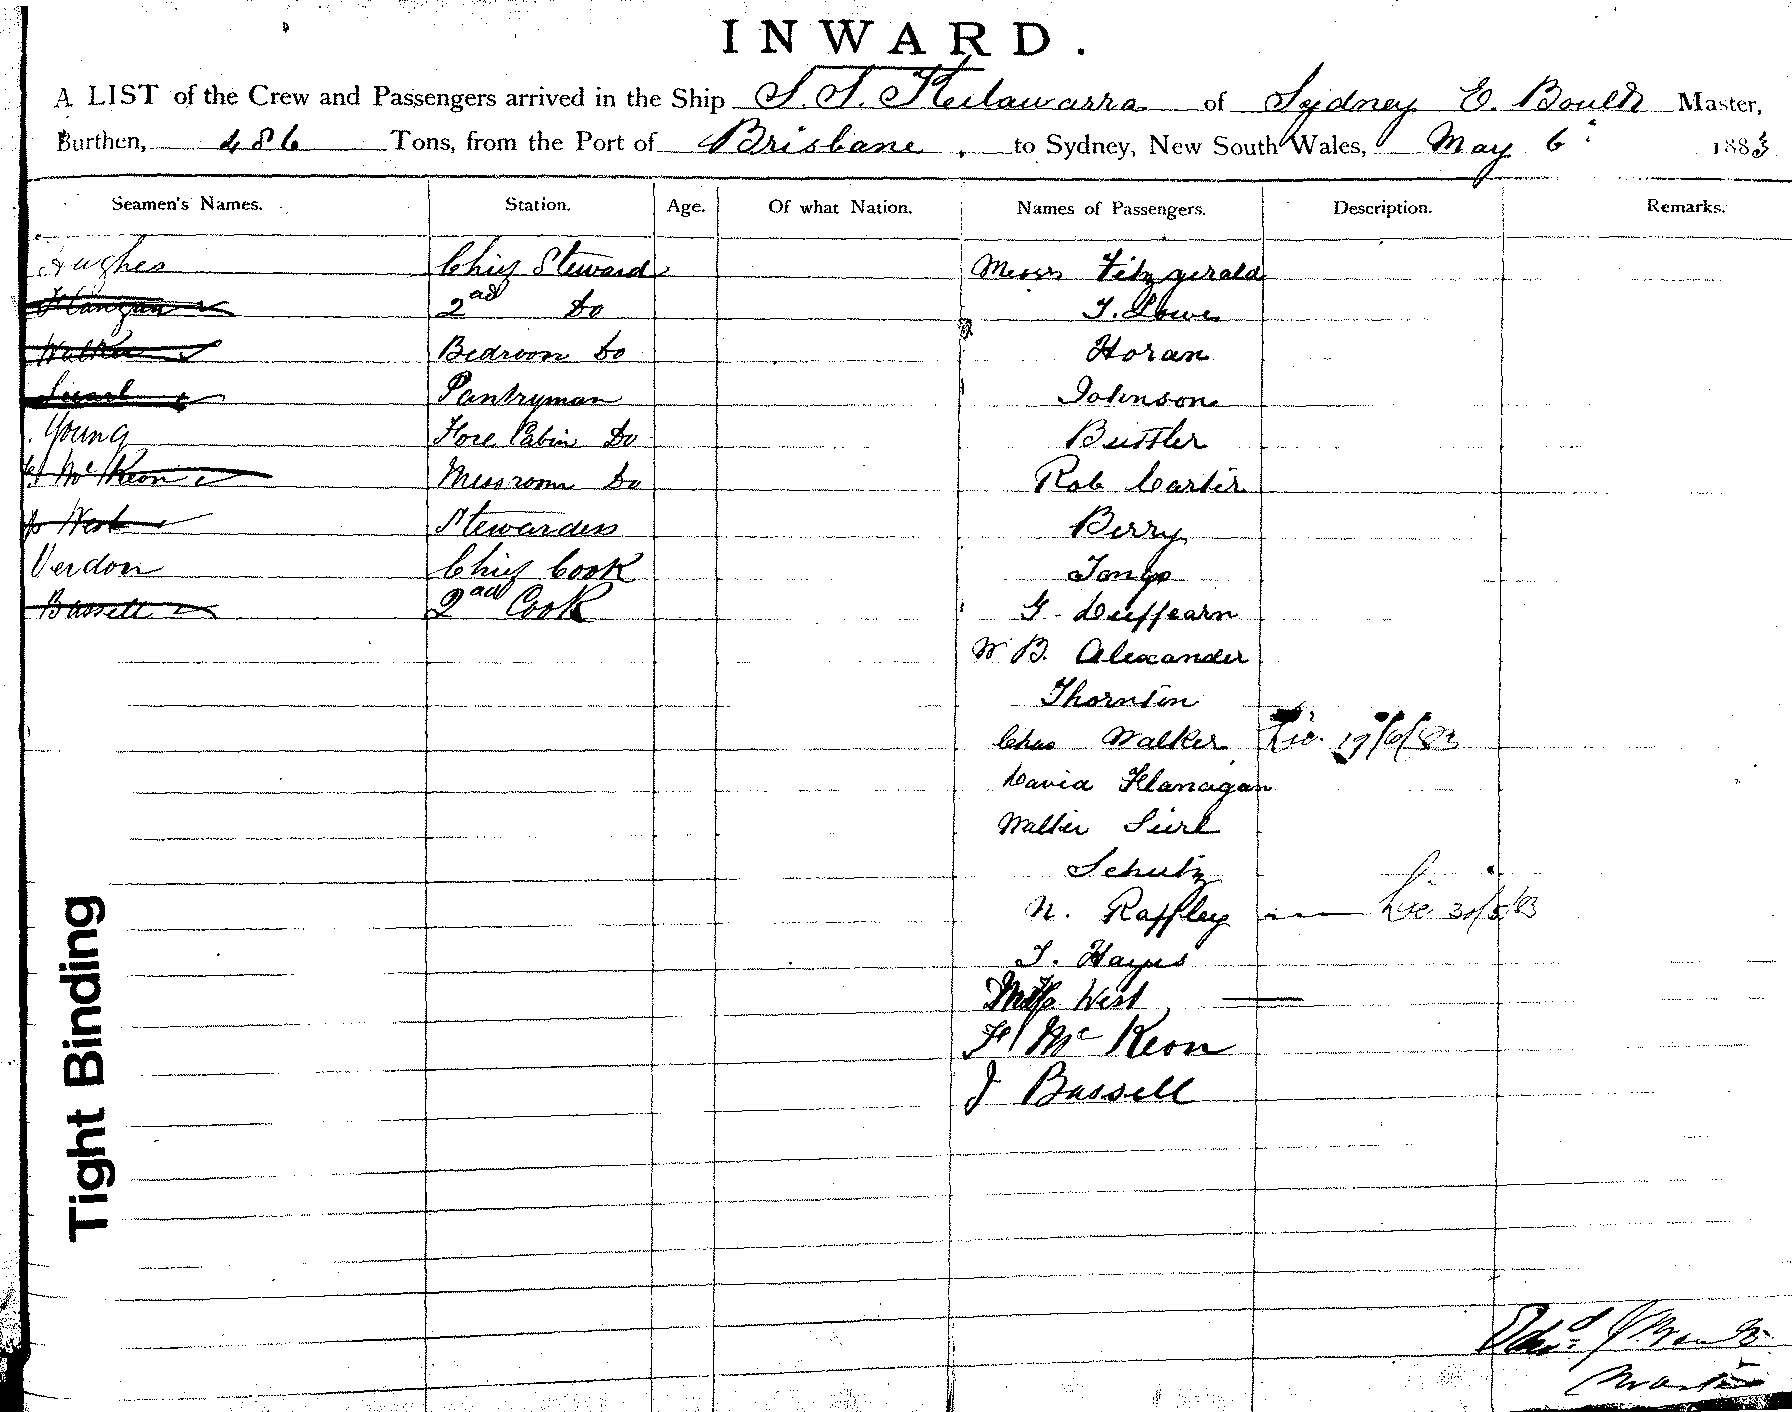 INWARD.
A LIST of the Crew and Passengers arrived in the Ship S. S. Keilawarra of Sydney E. Boulton Master,
Burthen, 486 Tons, from the Port of Brisbane, to Sydney, New South Wales, May 6 1883
Seamen's Names. Station. Age. Of what Nation. Names of Passengers. Description. Remarks.
Hughes Chief Steward Messrs Fitzgerald
Flanagan 2nd Do T. Lowe
Walker Bedroom Do Horan
Pantryman Johnson
Young Fore Cabin Do
Mc Keon Messroom Do Rob Carter
West Stewardess Berry
Verdon Chief Cook
Bassell 2nd Cook G. Duffearn
W B. Alexander
Thornton
Chas Walker Lic. 19/6/83
David Flanagan
Walter
Schutz
N. Raffley Lic. 30/5/83
T. Hayes
West
Mc Keon
J Bassell
Tight Binding
Master